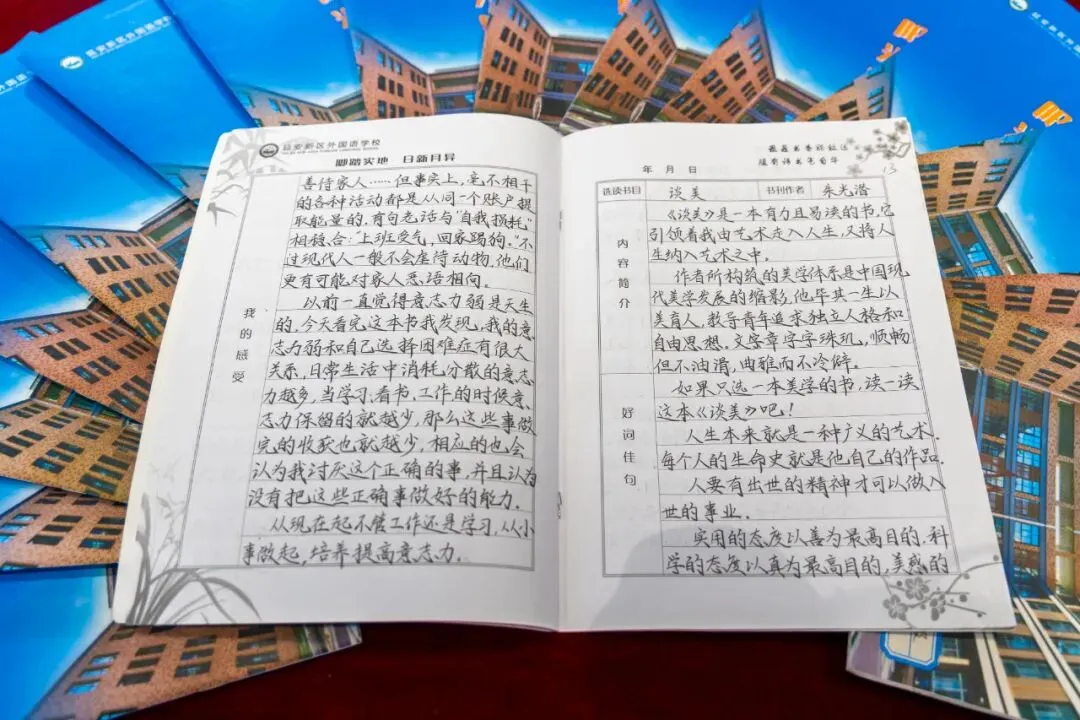 延安新区外国语学校
脚踏实地 日新月异
我的感受
善待家人……但事实上,毫不相干
的各种活动都是从同一个账户提
取能量的,有句老话与“自我损耗”
相稳合:“上班受气,回家踢狗。”不
过现代人一般不会虐待动物,他们
更有可能对家人恶语相向。
以前一直觉得意志力弱是天生
的,今天看完这本书我发现,我的意
志力弱和自己选择困难症有很大
关系,日常生活中消耗、分散的意志
力越多,当学习、看书、工作的时候意
志力保留的就越少,那么这些事做
完的收获也就越少,相应的也会
认为我讨厌这个正确的事,并且认为
没有把这些正确事做好的能力。
从现在起不管工作还是学习,从小
事做起,培养提高意志力。
最是书香能致远
腹有诗书气自华
年 月 日
13
选读书目 谈美 书刊作者 朱光潜
内容简介
《谈美》是一本有力且易读的书,它
引领着我由艺术走入人生,又将人
生纳入艺术之中。
作者所构筑的美学体系是中国现
代美学发展的缩影,他毕其一生以
美育人,教导青年追求独立人格和
自由思想,文字章字字珠玑,顺畅
但不油滑,典雅而不冷僻。
如果只选一本美学的书,读一读
这本《谈美》吧!
好词佳句
人生本来就是一种广义的艺术,
每个人的生命史就是他自己的作品。
人要有出世的精神才可以做入
世的事业。
实用的态度以善为最高目的,科
学的态度以真为最高目的,美感的